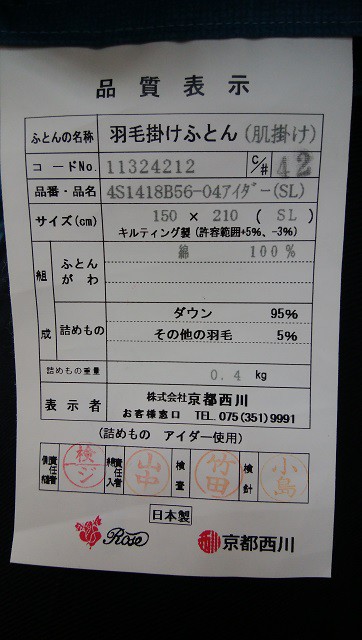 品質表示
ふとんの名称 羽毛掛けふとん(肌掛け)
コードNo. 11324212 C/# 42
品番・品名 4S1418B56-04アイダー(SL)
サイズ(cm) 150 × 210 ( SL )
キルティング製(許容範囲+5%、-3%)
組成 ふとんがわ 綿 100%
詰めもの ダウン 95%
その他の羽毛 5%
詰めもの重量 0.4 kg
表示者 株式会社京都西川
お客様窓口 TEL.075(351)9991
(詰めもの アイダー使用)
検ジ 山中 検査 竹田 検針 小島
日本製
Rose 西川 京都西川